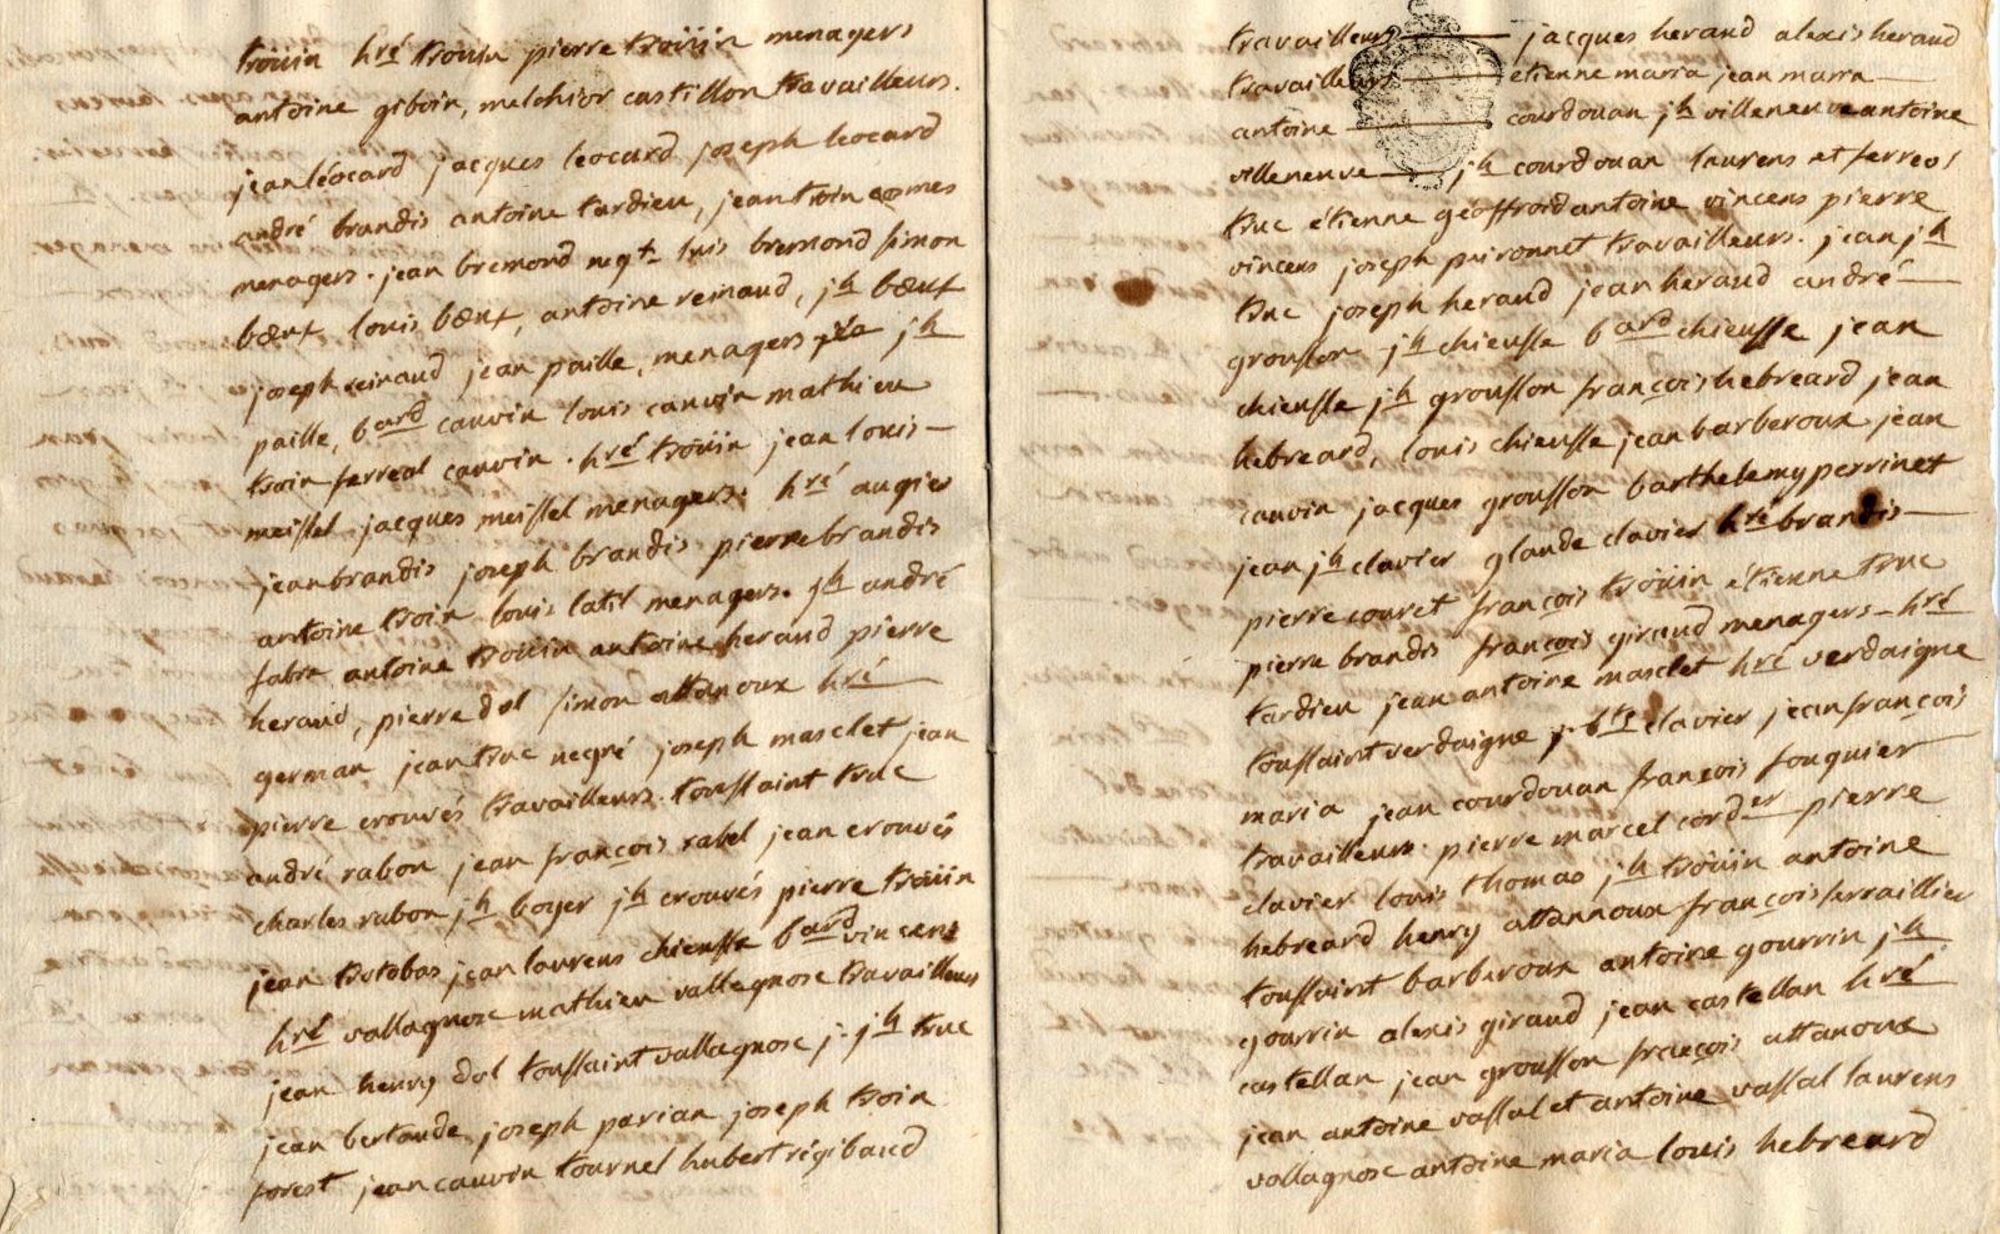 troüin hré troüin pierre troüin menagers
antoine giboin, melchior castillon travailleurs.
jean léocard jacques leocard joseph leocard
andré brandis antoine tardieu, jean troin
menagers. jean bremond negt luis bremond simon
bœuf louis bœuf, antoine reinaud, jh bœuf
joseph reinaud jean paille, menagers jh
paille, bard cauvin louis cauvin mathieu
troin ferreol cauvin. hré troüin jean louis
meissel jacques meissel menagers. hré augier
jean brandis joseph brandis pierre brandis
antoine troin louis latil menagers. jh andré
fabre antoine troüin antoine heraud pierre
heraud, pierre dol simon attanoux hré
german jean truc negré joseph masclet jean
pierre crouvés travailleurs. toussaint truc
andré rabon jean francois rabel jean crouvés
charles rabon jh boyer jh crouvés pierre troüin
jean trotobas jean laurens chieusse bard vincens
hré vallagnose mathieu vallagnose travailleurs
jean henry dol toussaint vallagnose j. jh truc
jean bertaude joseph parian joseph troin
forest jean cauvin tournel hubert rigibaud
travailleurs jacques heraud alexis heraud
travailleurs etienne maria jean maria
antoine courdouan jh villeneuve antoine
villeneuve jh courdouan laurens et ferreol
truc étienne géoffroid antoine vincens pierre
vincens joseph peironnet travailleurs. jean jh
truc joseph heraud jean heraud andré
grousson jh chieusse bard chieusse jean
chieusse jh grousson francois hebreard jean
hebreard, louis chieusse jean barberoux jean
cauvin jacques grousson barthelemy perrinet
jean jh clavier glaude clavier hré brandis
pierre couret francois troüin étienne truc
pierre brandis francois giraud menagers hré
tardieu jean antoine masclet hré verdaigne
toussaint verdaigne j. bte clavier jean francois
maria jean courdouan francois fouquier
travailleurs. pierre marcel corder pierre
clavier louis thomas jh troüin antoine
hebreard henry attannoux francois ferraillier
toussaint barberoux antoine gourrin jh
gourrin alexis giraud jean castellan hré
castellan jean grousson francois attanoux
jean antoine vassal et antoine vassal laurens
vallagnose antoine maria louis hebreard